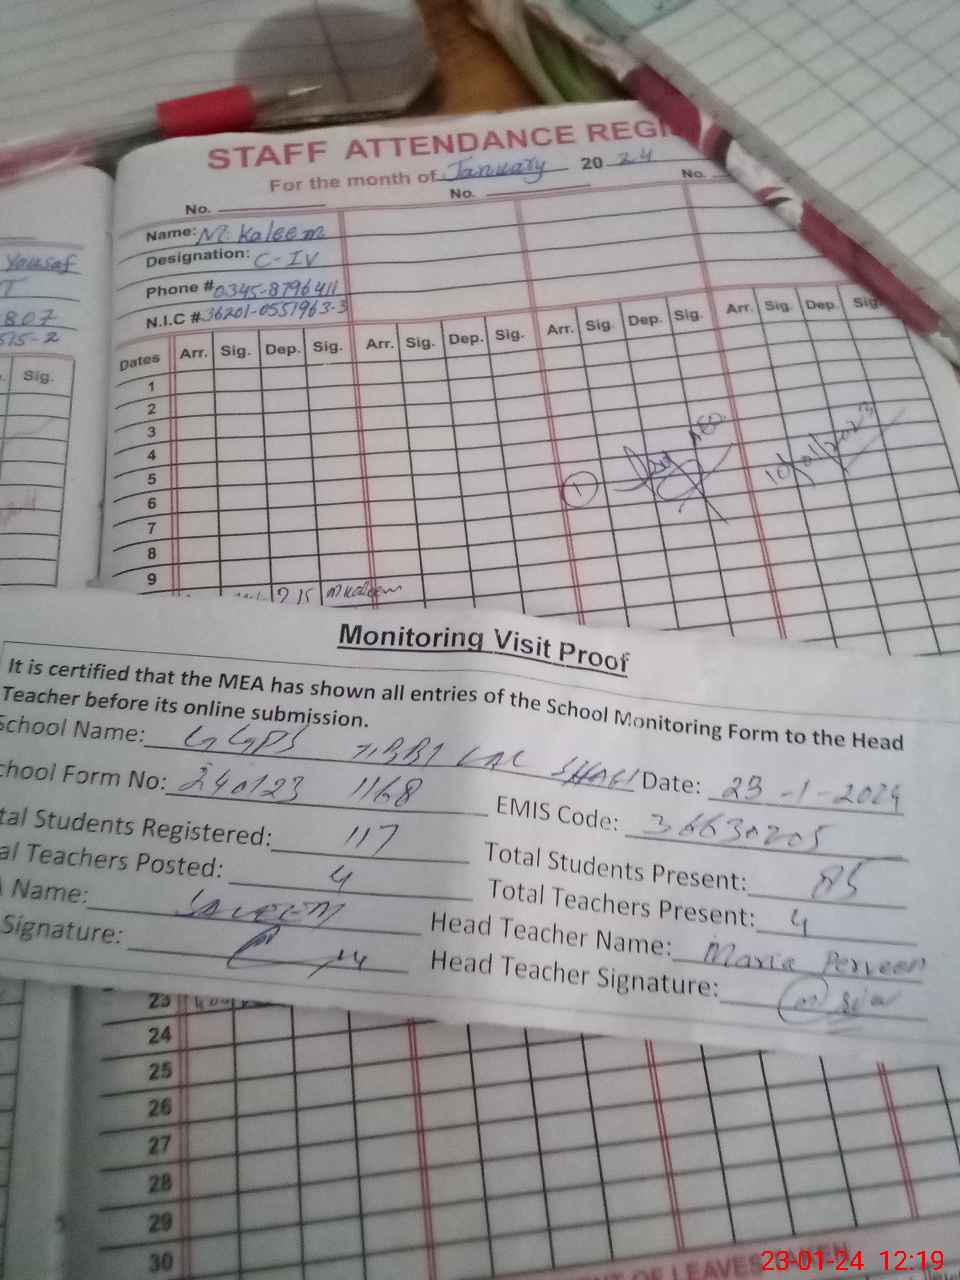 STAFF ATTENDANCE REGI
For the month of January 20 24
No.
No.
No.
Name: M. Kaleem
Designation: C-IV
Phone # 0345-8796411
N.I.C # 36201-0551963-3
Yousaf
T
807
515-2
Sig.
Dates Arr. Sig. Dep. Sig. Arr. Sig. Dep. Sig. Arr. Sig. Dep. Sig. Arr. Sig. Dep. Sig.
1
2
3
4
5
6
7
8
9
1
AEO
M Kaleem
Monitoring Visit Proof
It is certified that the MEA has shown all entries of the School Monitoring Form to the Head
Teacher before its online submission.
School Name: GGPS TIBBI LAL SHAH Date: 23-1-2024
chool Form No: 240123 1168 EMIS Code: 36630205
tal Students Registered: 117 Total Students Present: 85
al Teachers Posted: 4 Total Teachers Present: 4
Name: SALEEM Head Teacher Name: Maria Perveen
Signature: Head Teacher Signature:
23
24
25
26
27
28
29
30
OF LEAVES TAKEN
23-01-24 12:19